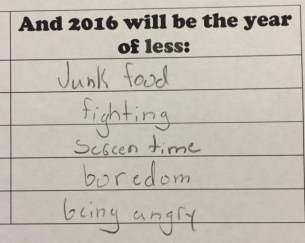 And 2016 will be the year
of less:
Junk food
fighting
Screen time
boredom
being angry